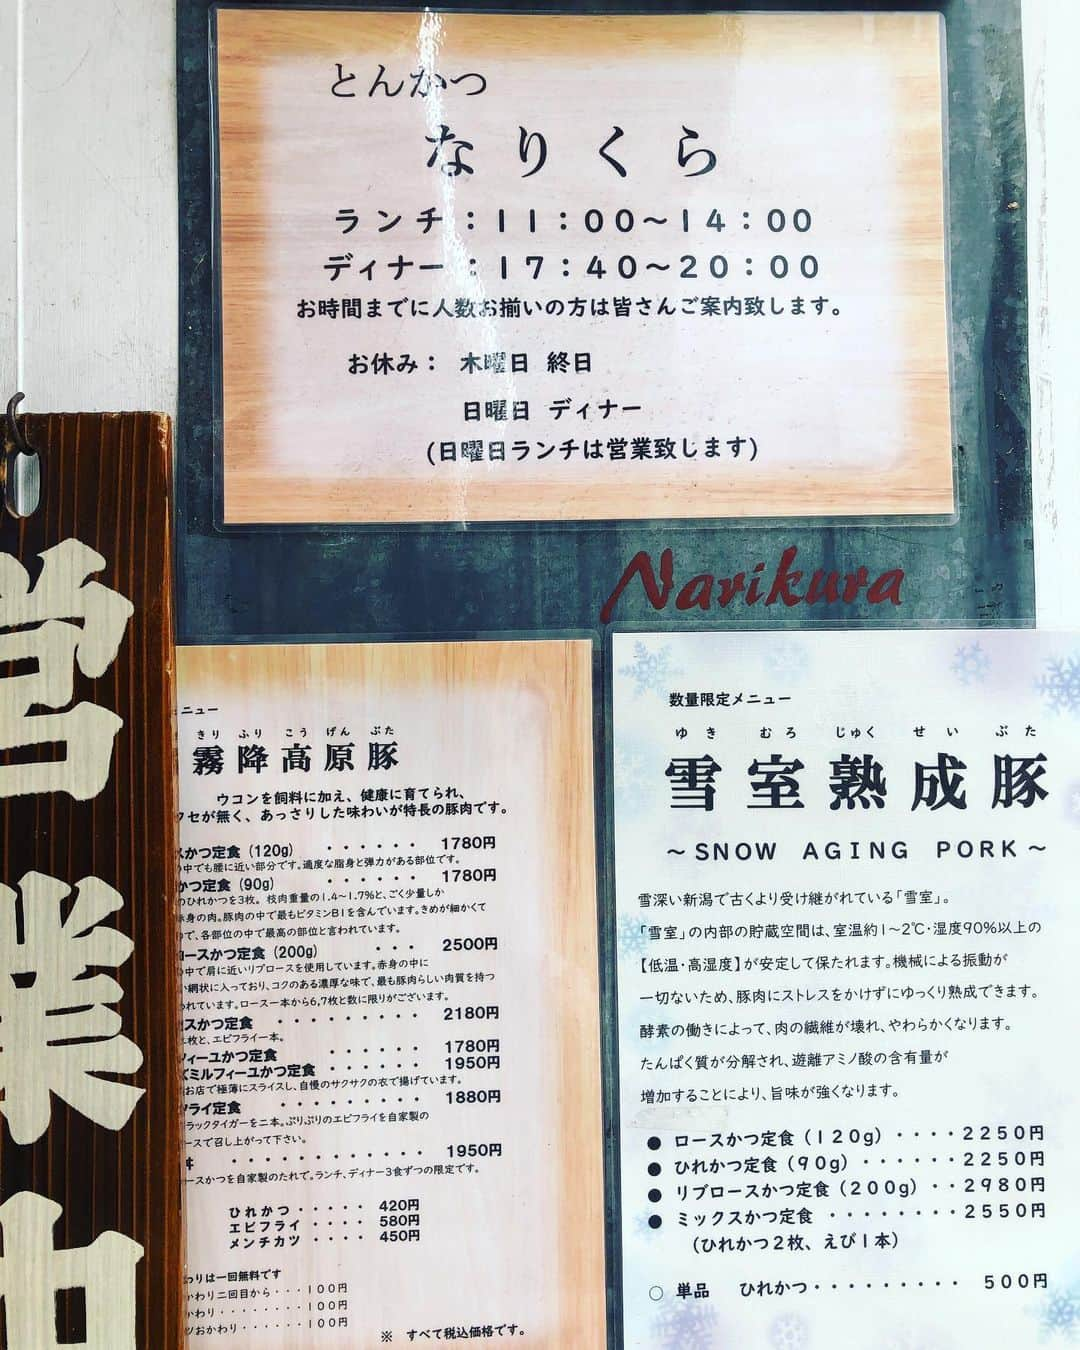 とんかつ
なりくら
ランチ：11：00～14：00
ディナー：17：40～20：00
お時間までに人数お揃いの方は皆さんご案内致します。
お休み： 木曜日 終日
日曜日 ディナー
(日曜日ランチは営業致します)
Narikura
営業中
ニュー
きり ふり こう げん ぶた
霧降高原豚
ウコンを飼料に加え、健康に育てられ、
クセが無く、あっさりした味わいが特長の豚肉です。
スかつ定食 (120g) ・・・・・・ 1780円
の中でも腰に近い部分です。適度な脂身と弾力がある部位です。
かつ定食 (90g) ・・・・・・ 1780円
のひれかつを3枚。 枝肉重量の1.4～1.7%と、ごく少量しか
赤身の肉。豚肉の中で最もビタミンB1を含んでいます。きめが細かくて
で、各部位の中で最高の部位と言われています。
ロースかつ定食 (200g) ・・・ 2500円
の中で肩に近いリブロースを使用しています。赤身の中に
い網状に入っており、コクのある濃厚な味で、最も豚肉らしい肉質を持つ
われています。ロース一本から6,7枚と数に限りがございます。
スかつ定食 ・・・・・・・・・ 2180円
二枚と、エビフライ一本。
フィーユかつ定食 ・・・・・・ 1780円
ズミルフィーユかつ定食 ・・・・・・ 1950円
お店で極薄にスライスし、自慢のサクサクの衣で揚げています。
フライ定食 ・・・・・・・・・ 1880円
ラックタイガーを二本。ぷりぷりのエビフライを自家製の
ースで召し上がって下さい。
丼 ・・・・・・・・・・・・ 1950円
ースかつを自家製のたれで。ランチ、ディナー3食ずつの限定です。
ひれかつ ・・・・・ 420円
エビフライ ・・・・ 580円
メンチカツ ・・・・ 450円
わりは一回無料です
かわり二回目から・・・100円
かわり・・・・・・・・100円
ツおかわり・・・・・・100円
※ すべて税込価格です。
数量限定メニュー
ゆき むろ じゅく せい ぶた
雪室熟成豚
～SNOW AGING PORK～
雪深い新潟で古くより受け継がれている「雪室」。
「雪室」の内部の貯蔵空間は、室温約1～2℃・湿度90%以上の
【低温・高湿度】が安定して保たれます。機械による振動が
一切ないため、豚肉にストレスをかけずにゆっくり熟成できます。
酵素の働きによって、肉の繊維が壊れ、やわらかくなります。
たんぱく質が分解され、遊離アミノ酸の含有量が
増加することにより、旨味が強くなります。
● ロースかつ定食（120g）・・・・2250円
● ひれかつ定食（90g）・・・・・・2250円
● リブロースかつ定食（200g）・・2980円
● ミックスかつ定食 ・・・・・・・・2550円
（ひれかつ2枚、えび1本）
○ 単品 ひれかつ・・・・・・・・・ 500円